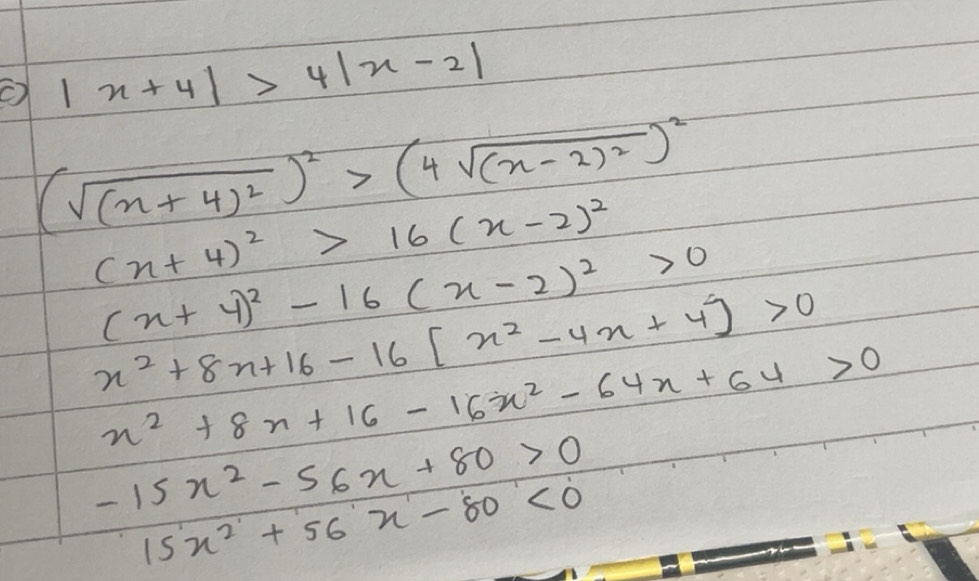 c) |x+4| > 4|x-2|
(√(x+4)²)² > (4√(x-2)²)²
(x+4)² > 16(x-2)²
(x+4)² - 16(x-2)² >0
x²+8x+16-16[x²-4x+4] >0
x²+8x+16-16x²-64x+64 >0
-15x²-56x+80 >0
15x²+56x-80 <0